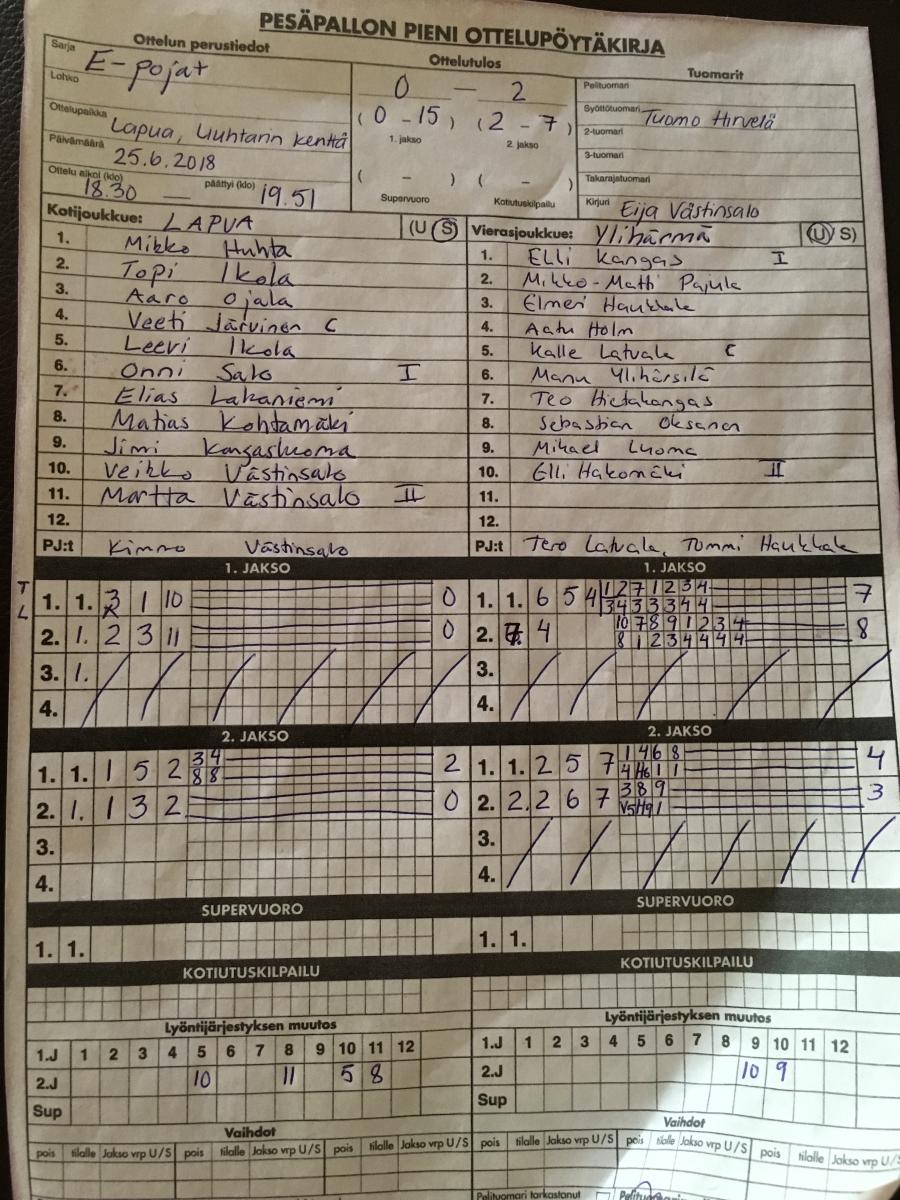 PESÄPALLON PIENI OTTELUPÖYTÄKIRJA
Ottelun perustiedot
Sarja E-pojat
Lohko
Ottelupaikka Lapua, Uuhtarin kenttä
Päivämäärä 25.6.2018
Ottelu alkoi (klo) 18.30 — päättyi (klo) 19.51
Ottelutulos
0 — 2
(0 - 15) (2 - 7)
1. jakso 2. jakso
( - ) ( - )
Supervuoro Kotiutuskilpailu
Tuomarit
Pelituomari
Syöttötuomari Tuomo Hirvelä
2-tuomari
3-tuomari
Takarajatuomari
Kirjuri Eija Västinsalo
Kotijoukkue: LAPUA (U S)
1. Mikko Huhta
2. Topi Ikola
3. Aaro Ojala
4. Veeti Järvinen C
5. Leevi Ikola
6. Onni Salo I
7. Elias Lakaniemi
8. Matias Kohtamäki
9. Jimi Kangasluoma
10. Veikko Västinsalo
11. Martta Västinsalo II
12.
PJ:t Kimmo Västinsalo
Vierasjoukkue: Ylihärmä (U S)
1. Elli Kangas I
2. Mikko-Matti Pajula
3. Elmeri Haukkala
4. Aatu Holm
5. Kalle Latvala C
6. Manu Ylihärsilä
7. Teo Hietakangas
8. Sebastian Oksanen
9. Mikael Luoma
10. Elli Hakomäki II
11.
12.
PJ:t Tero Latvala, Tommi Haukkala
T
L
1. JAKSO
1. 1. 3 1 10 0
2
2. 1. 2 3 11 0
3. 1.
4.
1. JAKSO
1. 1. 6 5 4 1 2 7 1 2 3 4 7
3 4 3 3 3 4 4
2. 7. 4 10 7 8 9 1 2 3 4 8
8 1 2 3 4 4 4 4
3.
4.
2. JAKSO
1. 1. 1 5 2 3 4 2
8 8
2. 1. 1 3 2 0
3.
4.
2. JAKSO
1. 1. 2 5 7 1 4 6 8 4
4 H6 1 1
2. 2. 2 6 7 3 8 9 3
V5 H9 1
3.
4.
SUPERVUORO
1. 1.
SUPERVUORO
1. 1.
KOTIUTUSKILPAILU
KOTIUTUSKILPAILU
Lyöntijärjestyksen muutos
1.J 1 2 3 4 5 6 7 8 9 10 11 12
2.J 10 11 5 8
Sup
Lyöntijärjestyksen muutos
1.J 1 2 3 4 5 6 7 8 9 10 11 12
2.J 10 9
Sup
Vaihdot
pois tilalle Jakso vrp U/S pois tilalle Jakso vrp U/S pois tilalle Jakso vrp U/S
Vaihdot
pois tilalle Jakso vrp U/S pois tilalle Jakso vrp U/S pois tilalle Jakso vrp U/S
Pelituomari tarkastanut